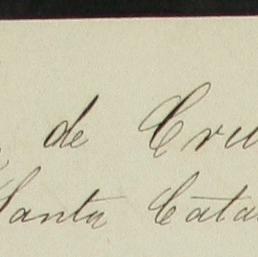 de Cru
Santa Cata